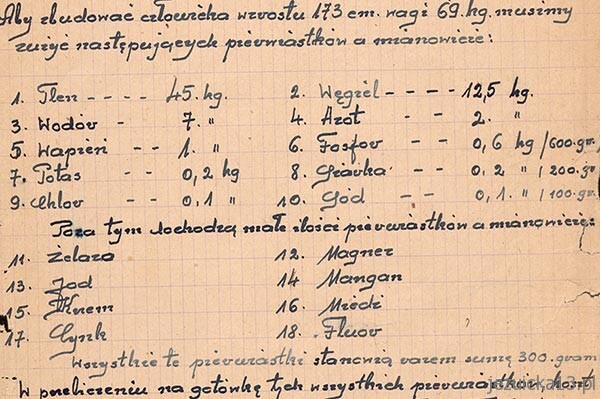 Aby zbudować człowieka wzrostu 173 cm. wagi 69. kg. musimy
zużyć następujących pierwiastków a mianowicie:
1. Tlen ---- 45. kg. 2. Węgiel ---- 12,5 kg.
3. Wodór - 7. " 4. Azot - - 2. "
5. Wapień -- 1. " 6. Fosfor -- 0,6 kg /600.gr.
7. Potas -- 0,2 kg 8. Siarka -- 0,2 " /200.gr
9. Chlor -- 0,1 " 10. Sód -- 0,1. " /100.gr.
Poza tym dochodzą małe ilości pierwiastków a mianowicie:
11. Żelazo 12. Magnez
13. Jod 14 Mangan
15. Krzem 16. Miedź
17. Cynk 18. Fluor
Wszystkie te pierwiastki stanowią razem sumę 300. gram
W przeliczeniu na gotówkę tych wszystkich pierwiastków, koszt